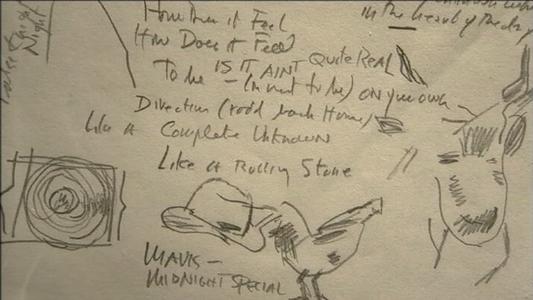 How Does it Feel
How Does it Feel
IS IT AINT Quite Real
To be — (in want to be) ON your own
Direction (road back Home)
Like A Complete Unknown
Like A Rolling Stone
in the heart of the
Night
MAVIS —
MIDNIGHT SPECIAL